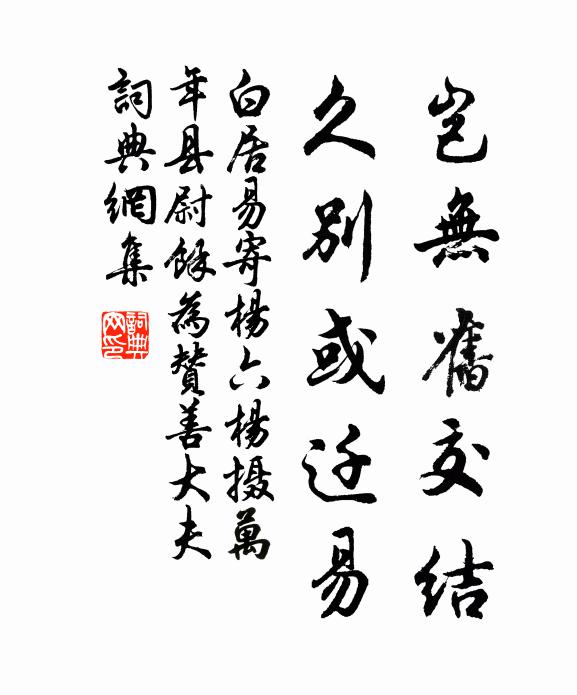 豈無舊交結
久別或迁易
白居易寄楊六楊摄萬
年县尉餘為贊善大夫
詞典網集
詞典
网印